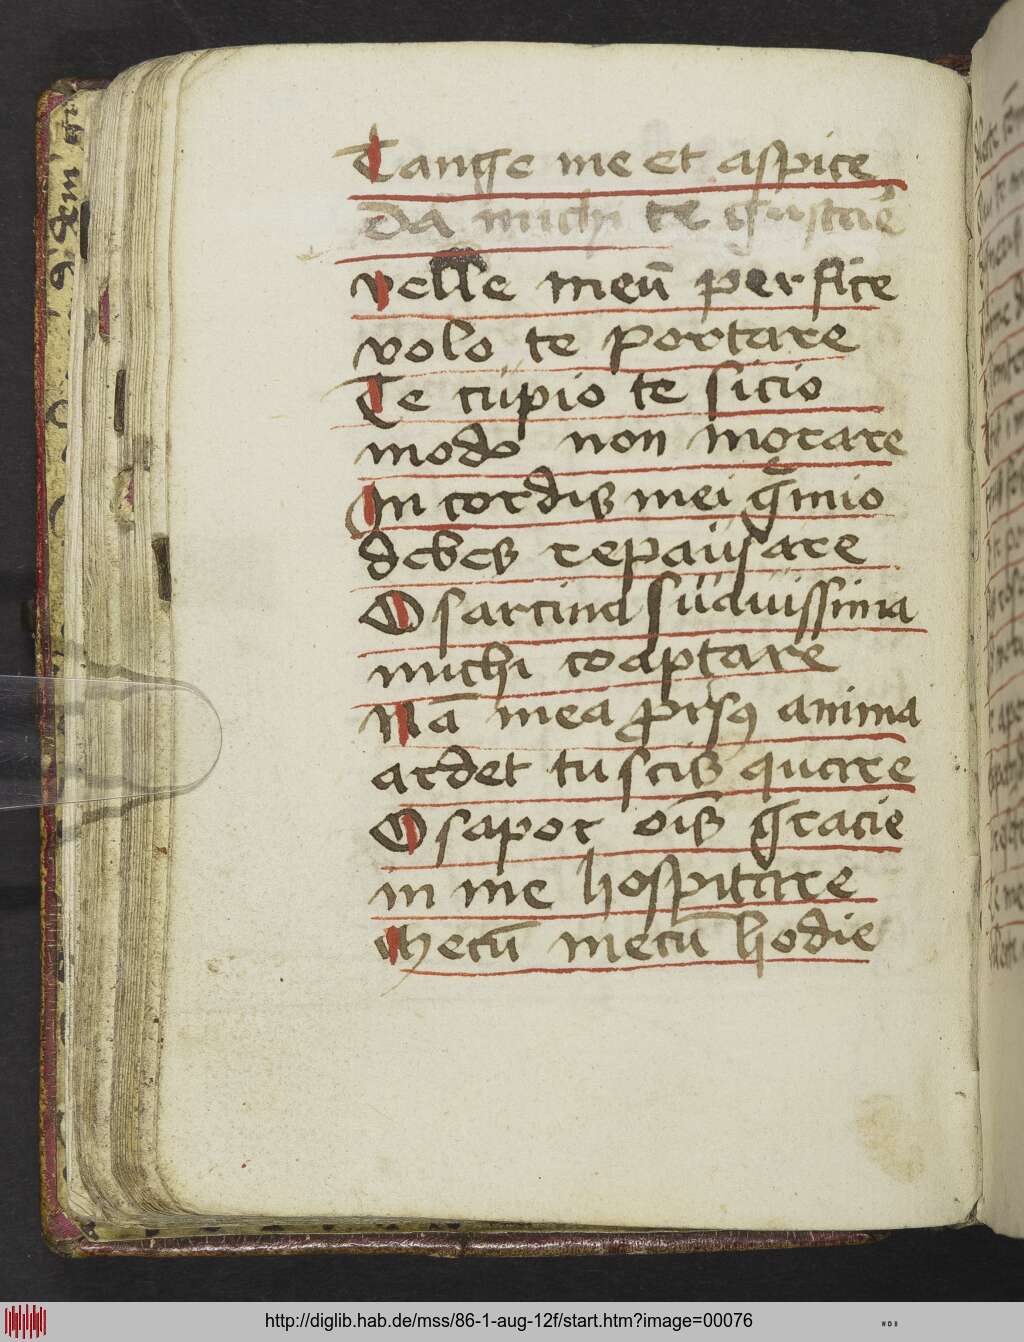 Tange me et aspice
Da michi te gustare
velle meū perfice
volo te portare
Te cupio te sicio
modo non morare
In cordis mei gmio
debes repausare
O sarcina suauissima
michi coaptare
Nā mea prorsus anima
ardet tu scis quare
O sapor ois gracie
in me hospitare
Mecū mecū hodie
http://diglib.hab.de/mss/86-1-aug-12f/start.htm?image=00076